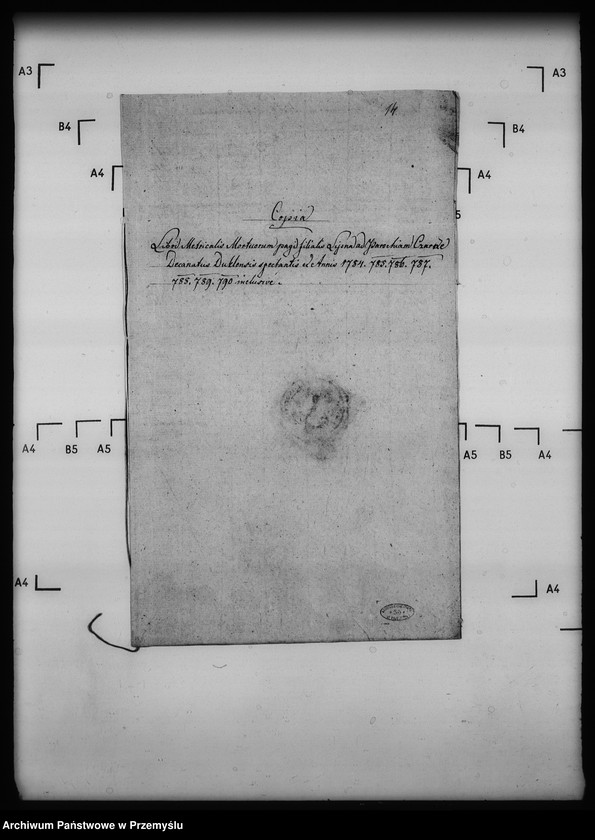 A3
A3
14
B4
B4
A4
A4
5
Copia
Libri Metricalis Mortuorum pagi filialis ad Parochiam Czarne
Decanatus Duklensis spectantis de Annis 1784. 785. 786. 787.
788. 789. 790 inclusive.
A4
B5
A5
A5
B5
A4
A4
A4
Archiwum Państwowe w Przemyślu